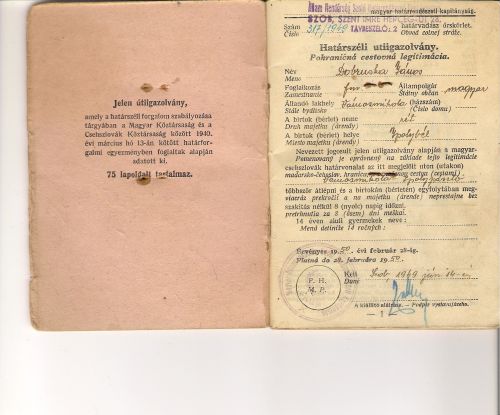 Jelen útiigazolvány,
amely a határszéli forgalom szabályozása
tárgyában a Magyar Köztársaság és a
Csehszlovák Köztársaság között 1940.
évi március hó 13-án kötött határfor-
galmi egyezményben foglaltak alapján
adatott ki.
75 lapoldalt tartalmaz.
magyar határrendészeti kapitányság.
SZOB, SZENT IMRE HERCEG-ÚT 28.
TÁVBESZÉLŐ: 2
Szám 317/1949 határvadász őrskörlet.
Číslo Obvod colnej stráže.
Határszéli utiigazolvány.
Pohraničná cestovná legitimácia.
Név Dobruska János
Meno
Foglalkozás Állampolgár magyar
Zamestnanie Štátny občan
Állandó lakhely Vámosmikola (házszám)
Stále bydlisko (Číslo domu)
A birtok (bérlet) neme rét
Druh majetku (árendy)
A birtok (bérlet) helye Ipolybél
Miesto majetku (árendy)
Nevezett jogosult jelen útiigazolvány alapján a magyar-
Pomenovaný je oprávnený na základe tejto legitimácie
csehszlovák határvonalat az itt megjelölt úton (utakon)
maďarsko-čelsosl. hranicu cestou (cestami)
Vámosmikola
többször átlépni és a birtokán (bérletén) egyfolytában meg-
viacráz prekročiť a na majetku (árende) neprestajne bez
szakítás nélkül 8 (nyolc) napig időzni.
pretrhnutia za 8 (osem) dní meškať.
14 éven aluli gyermekek neve:
Mená detí niže 14 ročných:
Érvényes 1950. évi február 28-ig.
Platná do 28. februára 1950.
P. H.
M. P.
Kelt Szob 1949 jún.
Dané
A kiállító aláírása. — Podpis vystavujúceho.
— 1